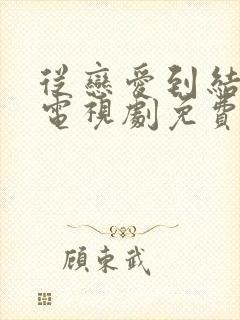 從戀愛到結
電視劇免費
顾東武